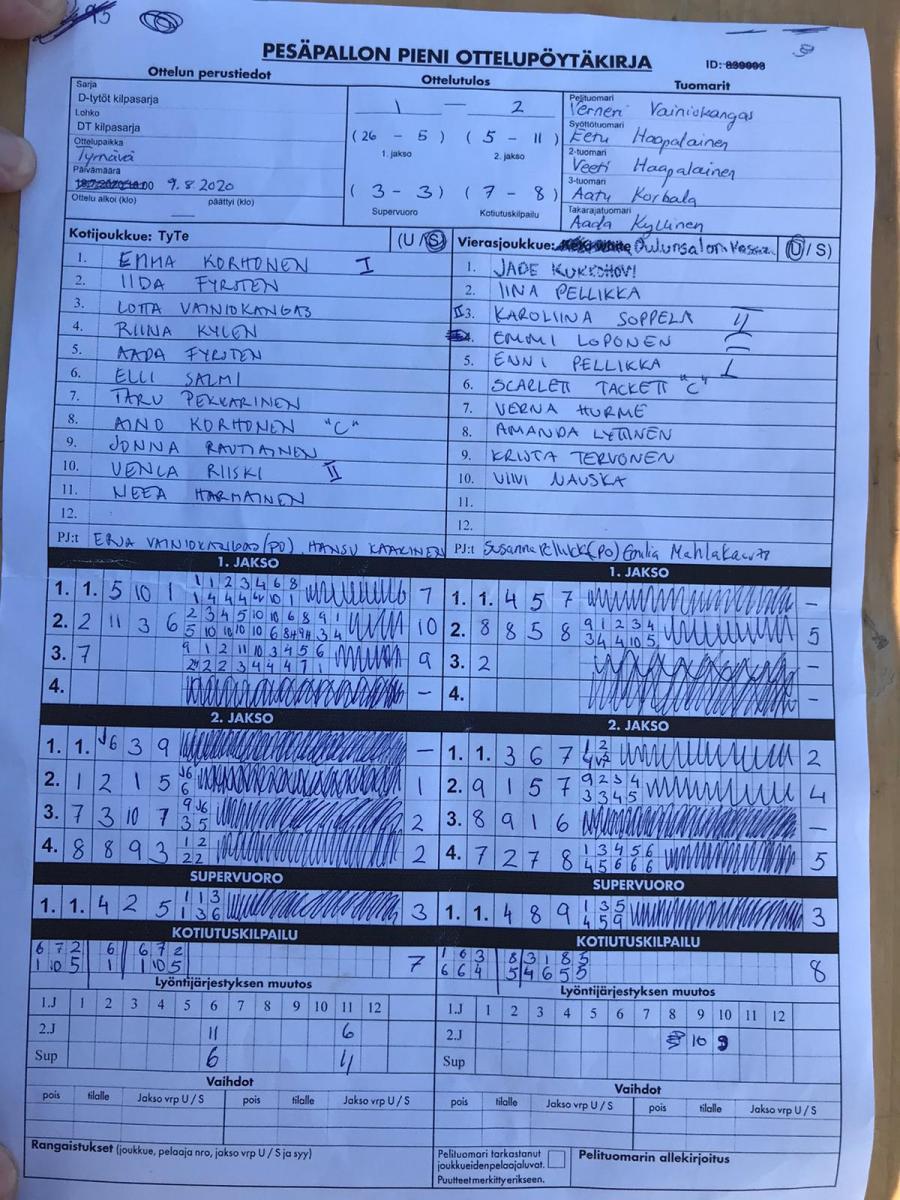 95
PESÄPALLON PIENI OTTELUPÖYTÄKIRJA
ID:
Ottelun perustiedot
Ottelutulos
Tuomarit
Sarja
D-tytöt kilpasarja
Lohko
DT kilpasarja
Ottelupaikka
Tyrnävä
Päivämäärä
9.8.2020
Ottelu alkoi (klo) päättyi (klo)
1 — 2
(26 - 5) (5 - 11)
1. jakso 2. jakso
(3 - 3) (7 - 8)
Supervuoro Kotiutuskilpailu
Pelituomari
Verneri Vainiokangas
Syöttötuomari
Eetu Haapalainen
2-tuomari
Veeti Haapalainen
3-tuomari
Aatu Korbala
Takarajatuomari
Aada Kyllinen
Kotijoukkue: TyTe (U / S)
1. EMMA KORHONEN I
2. IIDA FYRSTEN
3. LOTTA VAINIOKANGAS
4. RIINA KYLEN
5. AADA FYRSTEN
6. ELLI SALMI
7. TARU PEKKARINEN
8. AINO KORHONEN "C"
9. JONNA RAUTIAINEN
10. VENLA RIISKI II
11. NEEA HARMAINEN
12.
PJ:t ERJA VAINIOKANGAS (PO), HANSU KAAKINEN
Vierasjoukkue: (U / S)
1. JADE
2. IINA PELLIKKA
II 3. KAROLIINA SOPPELA
4. EMMI LOPONEN
5. ENNI PELLIKKA I
6. SCARLETT TACKETT "C"
7. VERNA HURME
8. AMANDA LYTTINEN
9. KRISTA TERVONEN
10. VIIVI NAUSKA
11.
12.
PJ:t Susanna (PO) Emilia
1. JAKSO
1. 1. 5 10 1 7
2. 2 11 3 6 10
3. 7 9
4. –
1. JAKSO
1. 1. 4 5 7 –
2. 8 8 5 8 5
3. 2 –
4. –
2. JAKSO
1. 1. 6 3 9 –
2. 1 2 1 5 1
3. 7 3 10 7 2
4. 8 8 9 3 1 2 2 2 2
2. JAKSO
1. 1. 3 6 7 2
2. 9 1 5 7 9 2 3 4 3 3 4 5 4
3. 8 9 1 6 –
4. 7 2 7 8 1 3 4 5 6 4 5 6 6 6 5
SUPERVUORO
1. 1. 4 2 5 1 1 3 1 3 6 3
SUPERVUORO
1. 1. 4 8 9 1 3 5 4 5 9 3
KOTIUTUSKILPAILU
6 7 2 6 6 7 2
1 10 5 1 1 10 5 7
KOTIUTUSKILPAILU
1 6 3 8 3 1 8 5
6 6 4 5 4 6 5 5 8
Lyöntijärjestyksen muutos
1.J 1 2 3 4 5 6 7 8 9 10 11 12
2.J 11 6
Sup 6 11
Lyöntijärjestyksen muutos
1.J 1 2 3 4 5 6 7 8 9 10 11 12
2.J 10 9
Sup
Vaihdot
pois tilalle Jakso vrp U / S pois tilalle Jakso vrp U / S
Vaihdot
pois tilalle Jakso vrp U / S pois tilalle Jakso vrp U / S
Rangaistukset (joukkue, pelaaja nro, jakso vrp U / S ja syy)
Pelituomari tarkastanut
joukkueiden pelaajaluvat.
Puutteet merkitty erikseen.
Pelituomarin allekirjoitus